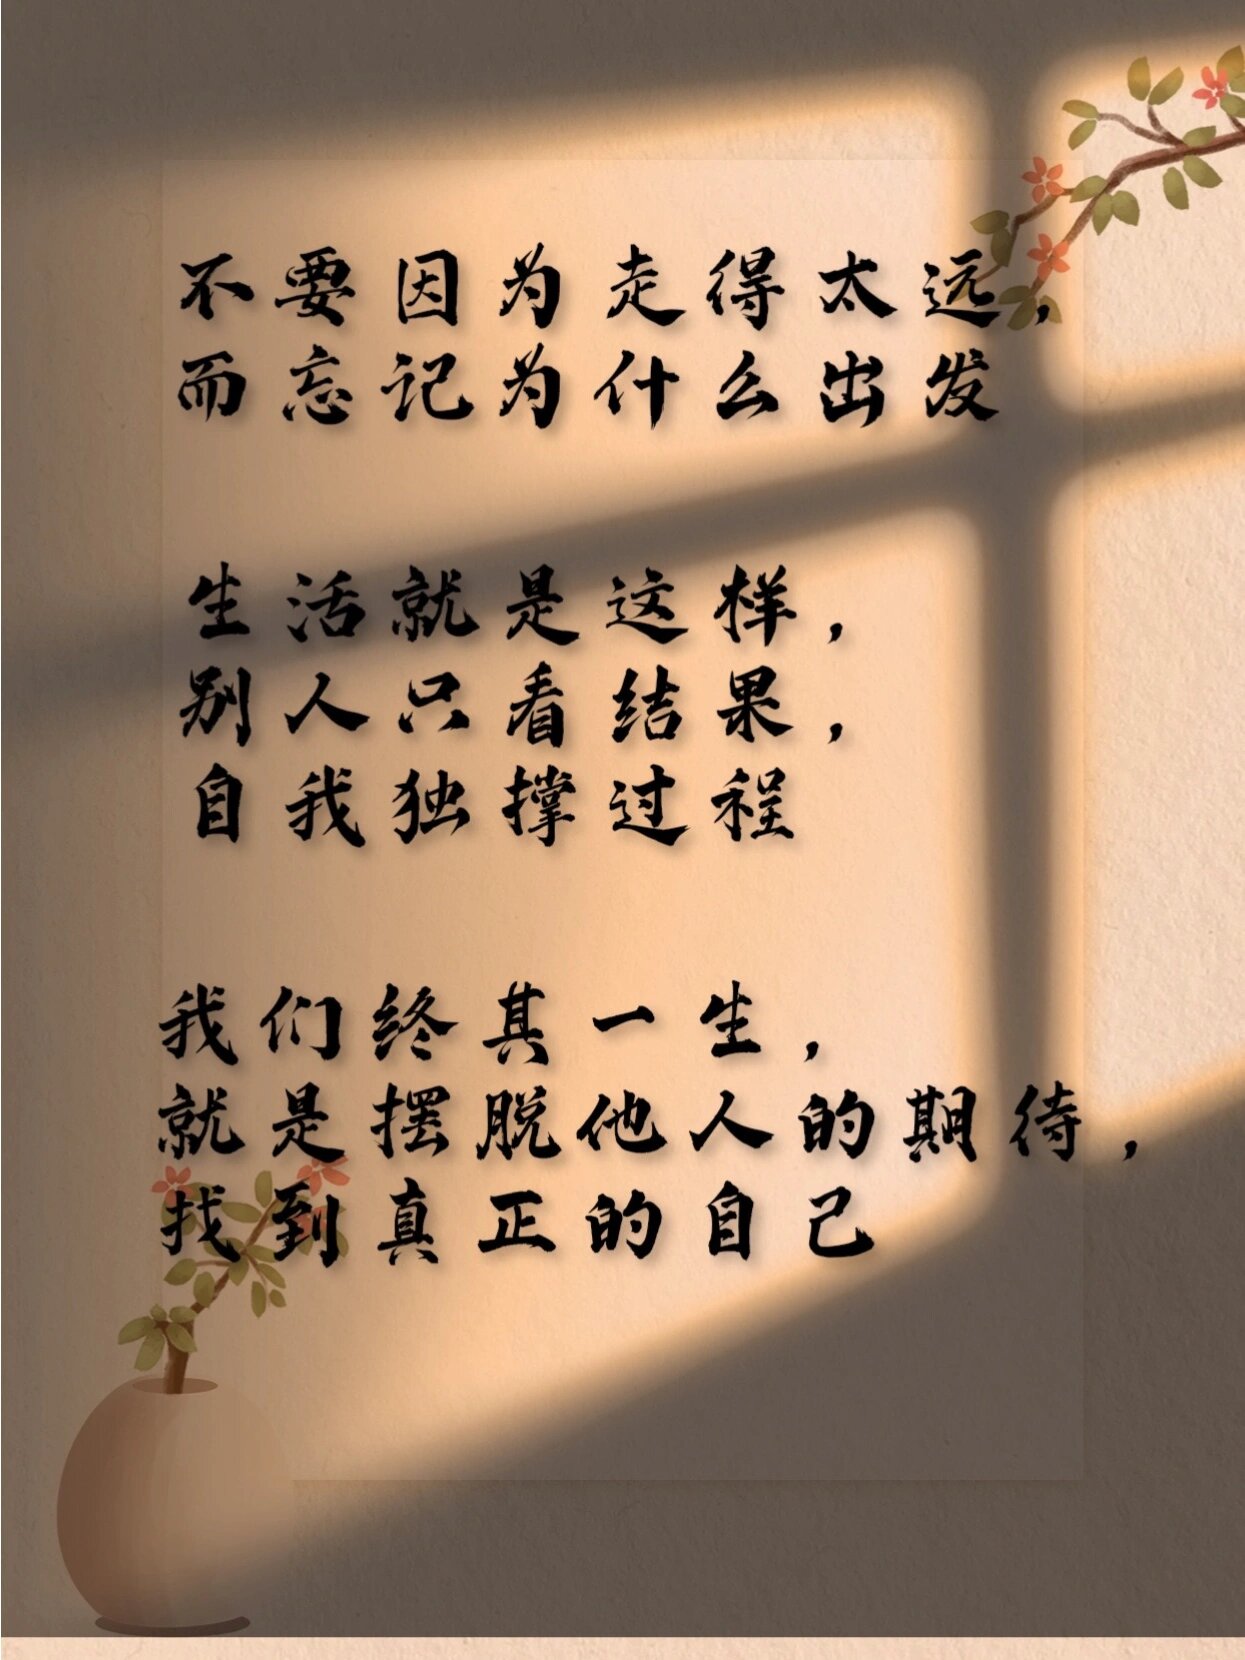 不要因为走得太远，
而忘记为什么出发
生活就是这样，
别人只看结果，
自我独撑过程
我们终其一生，
就是摆脱他人的期待，
找到真正的自己